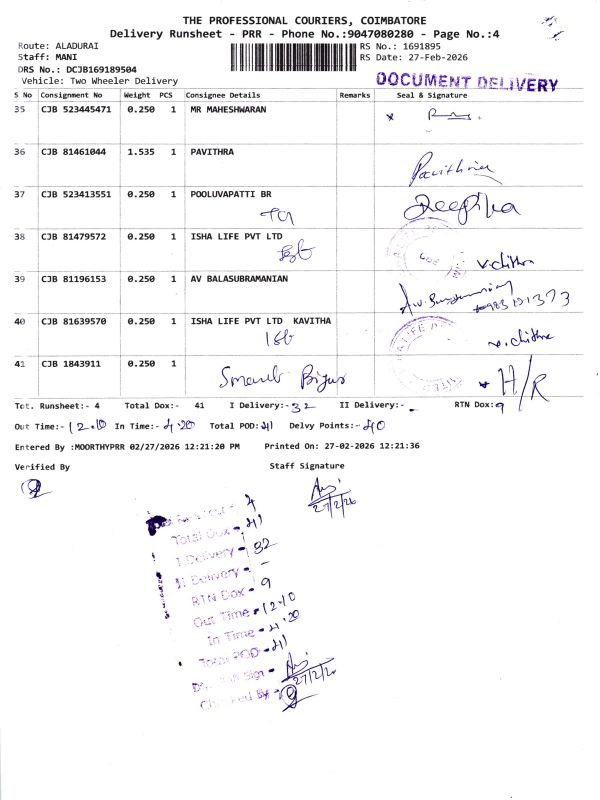 THE PROFESSIONAL COURIERS, COIMBATORE
Delivery Runsheet - PRR - Phone No.:9047080280 - Page No.:4
Route: ALADURAI
RS No.: 1691895
Staff: MANI
RS Date: 27-Feb-2026
DRS No.: DCJB169189504
Vehicle: Two Wheeler Delivery
DOCUMENT DELIVERY
S No Consignment No Weight PCS Consignee Details Remarks Seal & Signature
35 CJB 523445471 0.250 1 MR MAHESHWARAN
36 CJB 81461044 1.535 1 PAVITHRA
Pavithra
37 CJB 523413551 0.250 1 POOLUVAPATTI BR
Deepika
38 CJB 81479572 0.250 1 ISHA LIFE PVT LTD
v.chithra
39 CJB 81196153 0.250 1 AV BALASUBRAMANIAN
40 CJB 81639570 0.250 1 ISHA LIFE PVT LTD KAVITHA
v.chithra
41 CJB 1843911 0.250 1
H/R
Tot. Runsheet:- 4 Total Dox:- 41 I Delivery:- 32 II Delivery:- - RTN Dox: 9
Out Time:- 12.10 In Time:- 4.20 Total POD: 41 Delvy Points:- 40
Entered By :MOORTHYPRR 02/27/2026 12:21:20 PM Printed On: 27-02-2026 12:21:36
Verified By Staff Signature
27/2/26
4
Total Dox - 41
I Delivery - 32
II Delivery - -
RTN Dox - 9
Out Time - 12.10
In Time - 4.20
Total POD - 41
Sign -
27/2/26
Checked By -